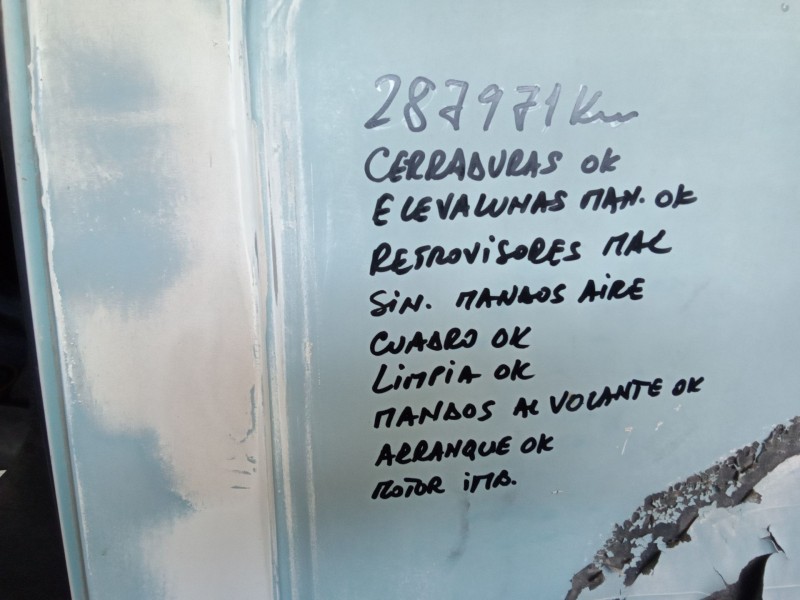 287971 Km
CERRADURAS OK
ELEVALUNAS MAN. OK
RETROVISORES MAL
SIN. MANDOS AIRE
CUADRO OK
LIMPIA OK
MANDOS AL VOLANTE OK
ARRANQUE OK
MOTOR IMB.